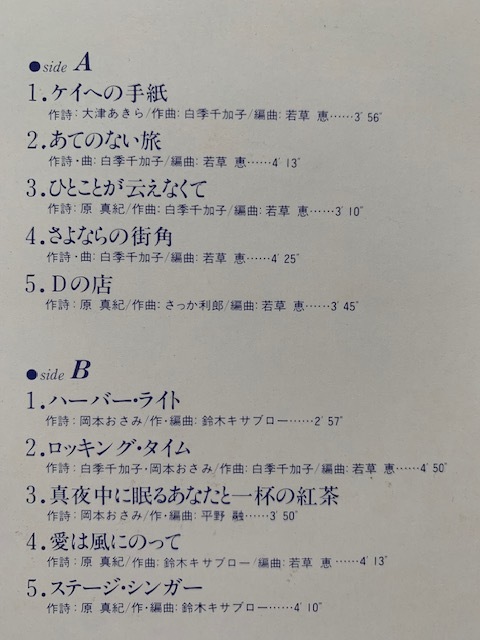 ●side A
1.ケイへの手紙
作詩:大津あきら/作曲:白季千加子/編曲:若草 恵……3′56″
2.あてのない旅
作詩・曲:白季千加子/編曲:若草 恵……4′13″
3.ひとことが云えなくて
作詩:原 真紀/作曲:白季千加子/編曲:若草 恵……3′10″
4.さよならの街角
作詩・曲:白季千加子/編曲:若草 恵……4′25″
5.Dの店
作詩:原 真紀/作曲:さっか利郎/編曲:若草 恵……3′45″
●side B
1.ハーバー・ライト
作詩:岡本おさみ/作・編曲:鈴木キサブロー……2′57″
2.ロッキング・タイム
作詩:白季千加子・岡本おさみ/作曲:白季千加子/編曲:若草 恵……4′50″
3.真夜中に眠るあなたと一杯の紅茶
作詩:岡本おさみ/作・編曲:平野 融……3′50″
4.愛は風にのって
作詩:原 真紀/作曲:鈴木キサブロー/編曲:若草 恵……4′13″
5.ステージ・シンガー
作詩:原 真紀/作・編曲:鈴木キサブロー……4′10″